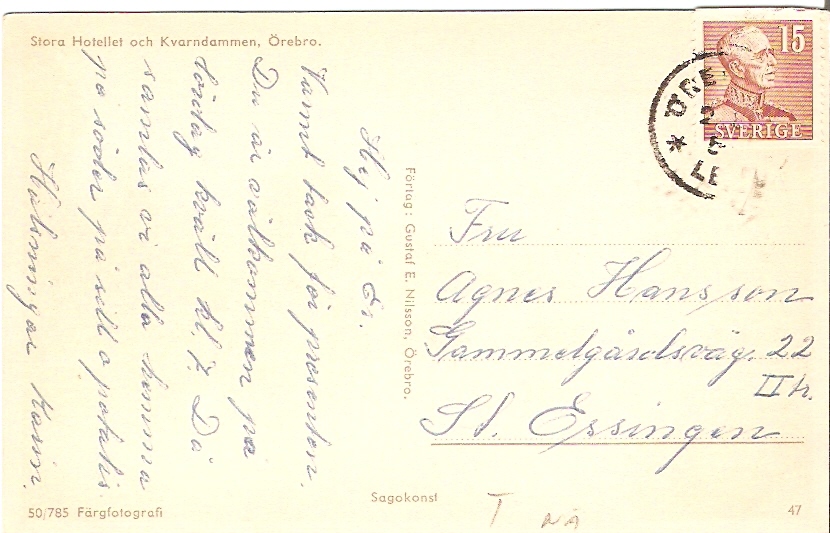 Stora Hotellet och Kvarndammen, Örebro.
Hej på Er.
Varmt tack för presenten.
Du är välkommen på
lördag kväll kl 7. Då
samlas vi alla hemma
på söder på sill o potatis.
Hälsningar Karin.
Förlag: Gustaf E. Nilsson, Örebro.
15
SVERIGE
ÖRE
Fru
Agnes Hansson
Gammelgårdsväg. 22
II tr.
St. Essingen
Sagokonst
50/785 Färgfotografi
47
T NÄ